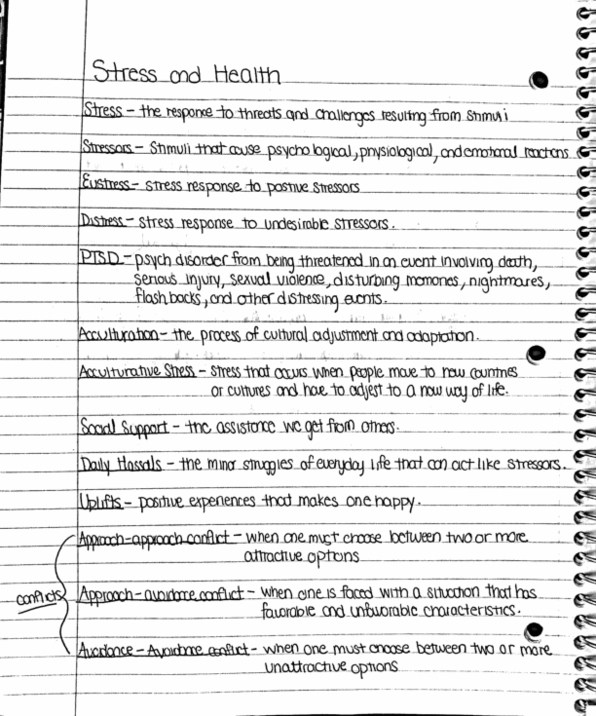 Stress and Health
Stress - the response to threats and challenges resulting from stimuli
Stressors - Stimuli that cause psychological, physiological, and emotional reactions
Eustress - stress response to positive stressors
Distress - stress response to undesirable stressors.
PTSD - psych disorder from being threatened in an event involving death,
serious injury, sexual violence, disturbing memories, nightmares,
flashbacks, and other distressing events.
Acculturation - the process of cultural adjustment and adaptation.
Acculturative Stress - stress that occurs when people move to new countries
or cultures and have to adjest to a new way of life.
Social Support - the assistance we get from others.
Daily Hassals - the minor struggles of everyday life that can act like stressors.
Uplifts - positive experiences that makes one happy.
Approach-approach conflict - when one must choose between two or more
attractive options
conflicts
Approach-avoidance conflict - when one is faced with a situation that has
favorable and unfavorable characteristics.
Avoidance - Avoidance conflict - when one must choose between two or more
unattractive options